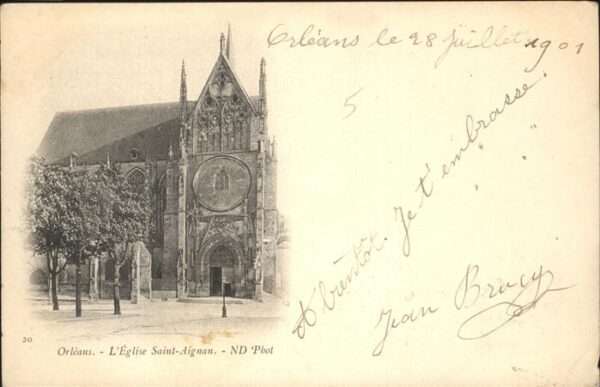 Orléans le 28 Juillet 1901
5
Je t'embrasse.
" "
" "
A bientôt.
Jean
20
Orléans. - L'Église Saint-Aignan. - ND Phot